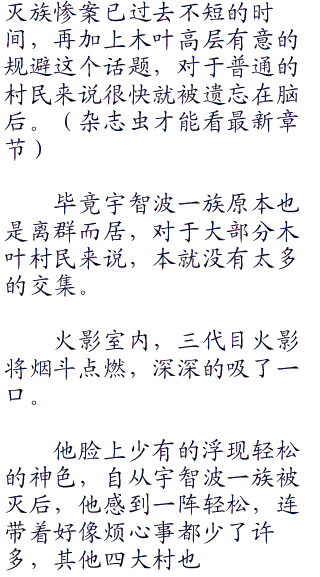 灭族惨案已过去不短的时
间，再加上木叶高层有意的
规避这个话题，对于普通的
村民来说很快就被遗忘在脑
后。（杂志虫才能看最新章
节）
毕竟宇智波一族原本也
是离群而居，对于大部分木
叶村民来说，本就没有太多
的交集。
火影室内，三代目火影
将烟斗点燃，深深的吸了一
口。
他脸上少有的浮现轻松
的神色，自从宇智波一族被
灭后，他感到一阵轻松，连
带着好像烦心事都少了许
多，其他四大村也